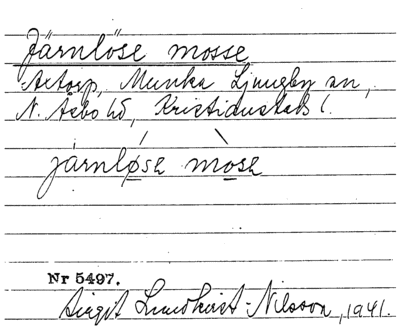 Järnlöse mosse
Axtorp, Munka Ljungby sn,
N. Åsbo hd, Kristianstads l.
járnlo̲sɛ mòsɛ
Nr 5497.
Birgit Lundkvist-Nilsson, 1941.